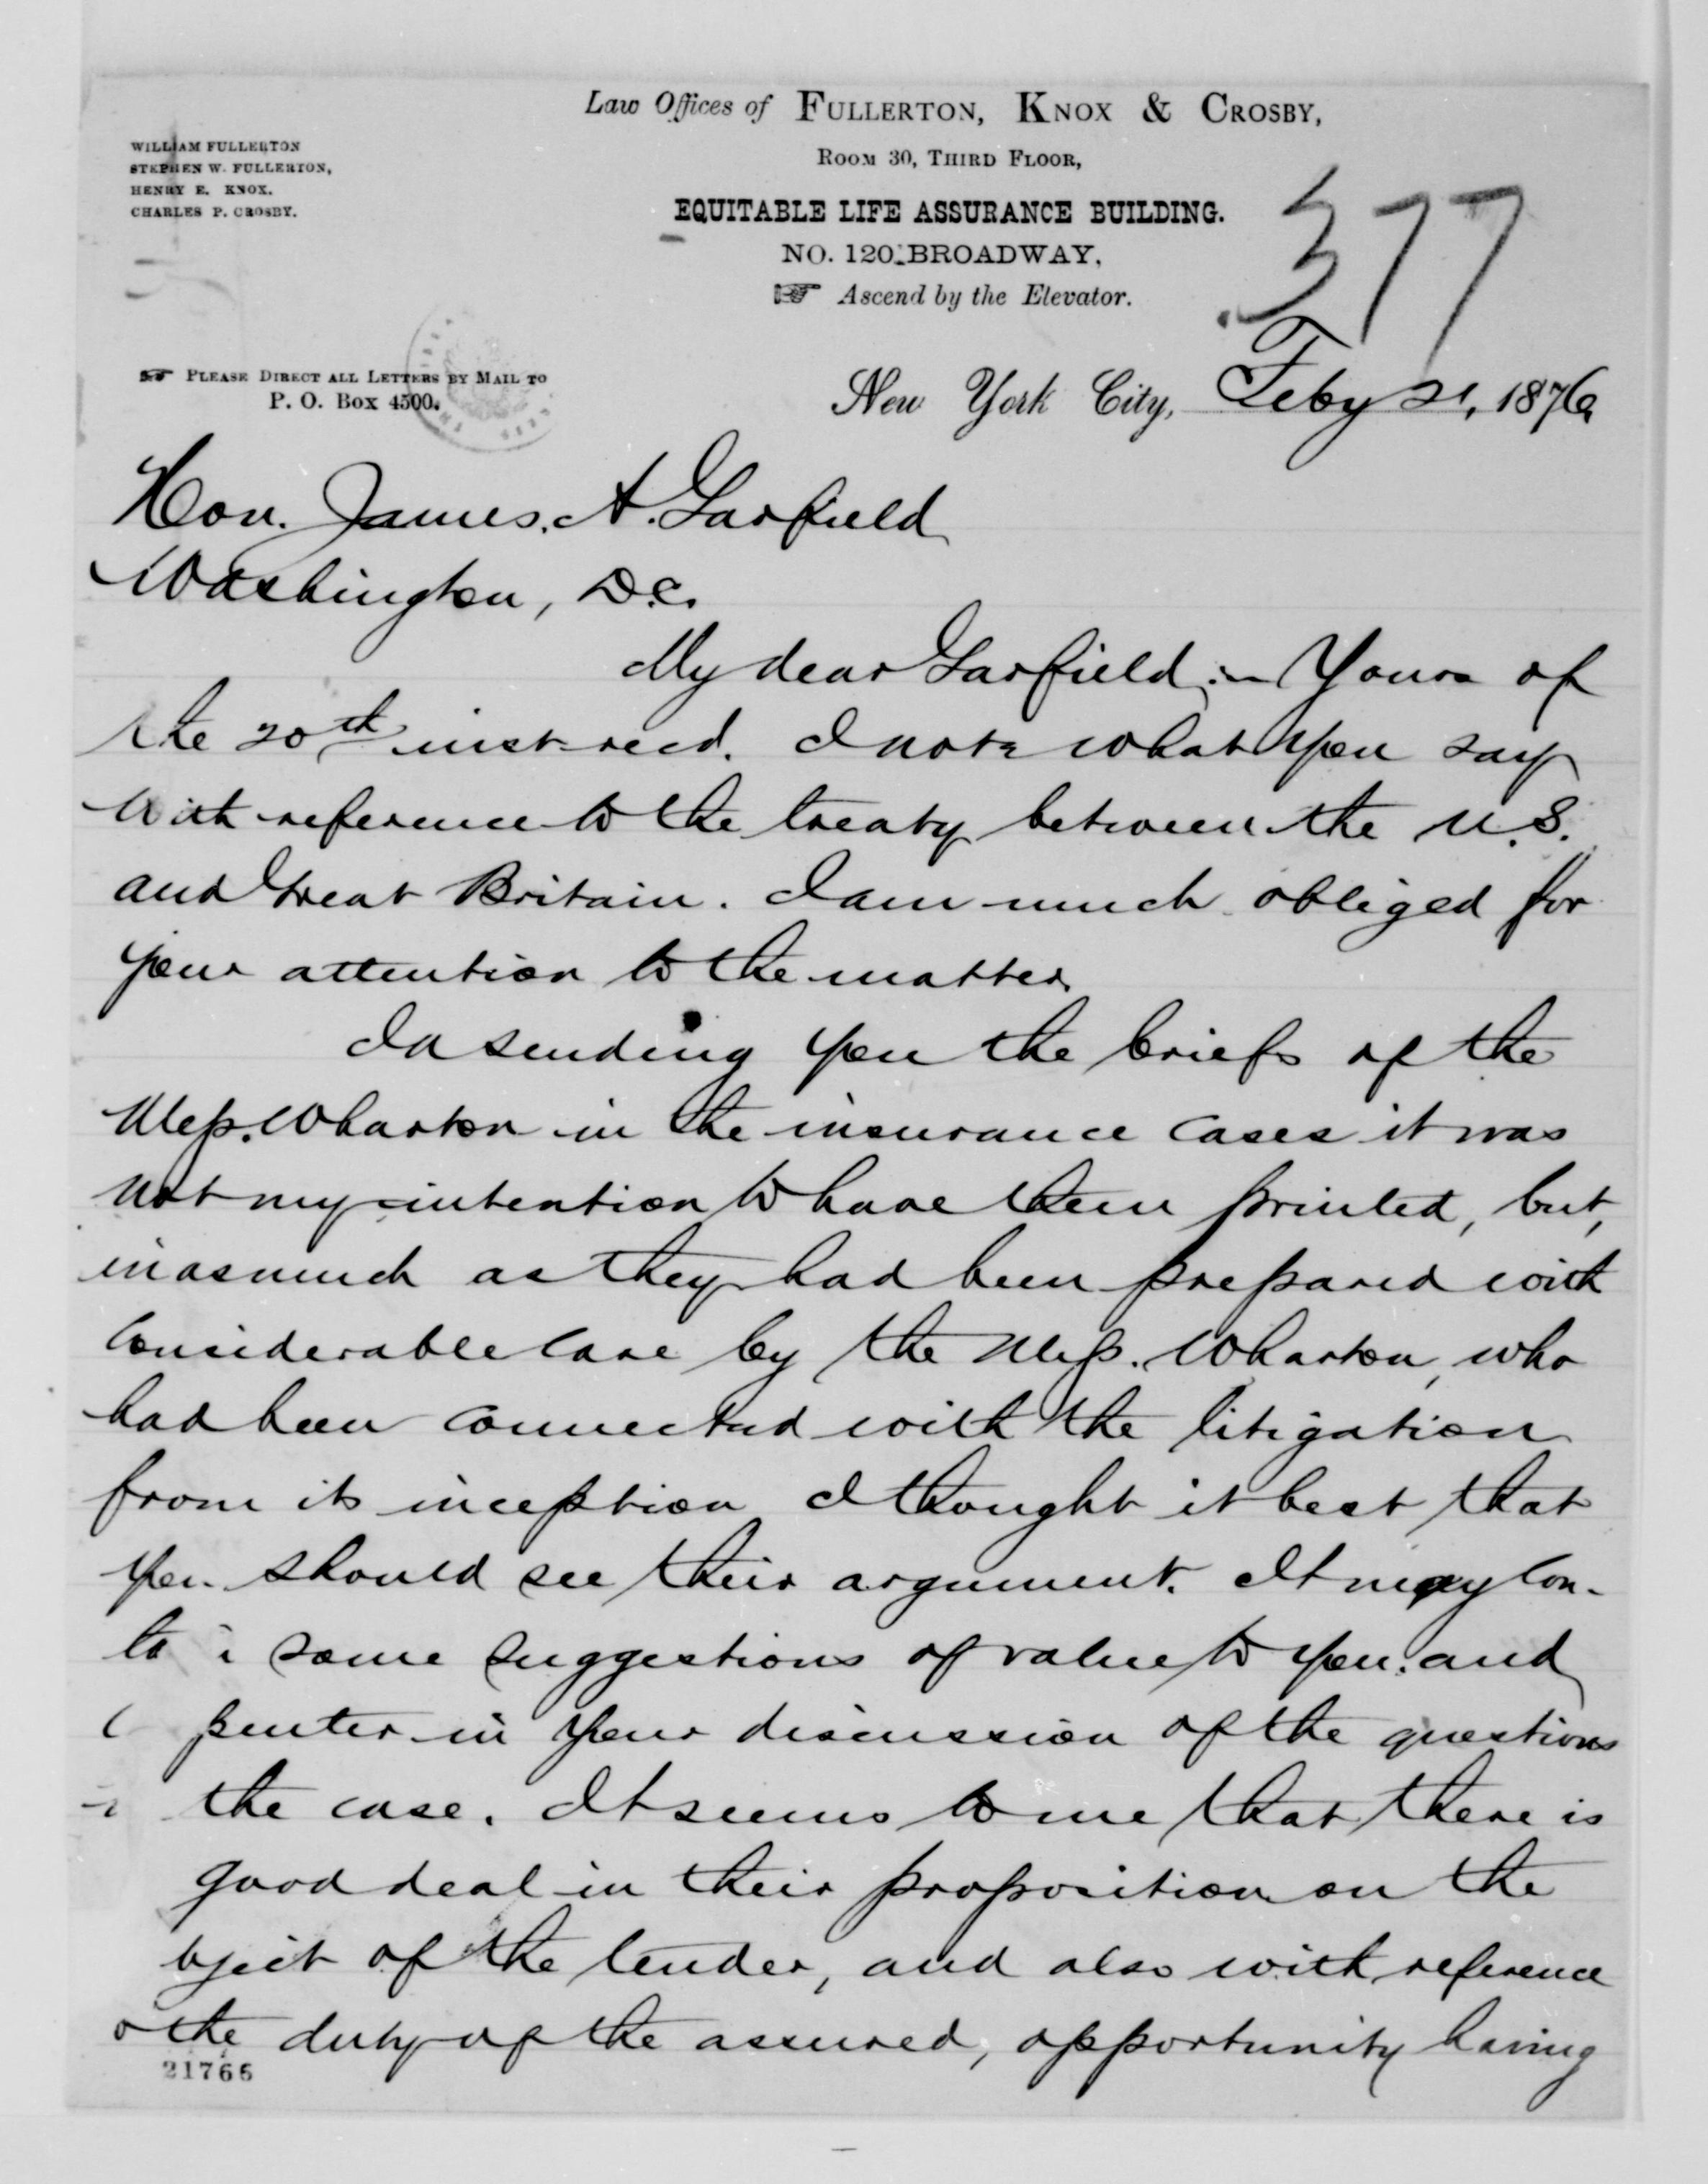 Law Offices of FULLERTON, KNOX & CROSBY,
WILLIAM FULLERTON
STEPHEN W. FULLERTON,
HENRY E. KNOX.
CHARLES P. CROSBY.
ROOM 30, THIRD FLOOR,
EQUITABLE LIFE ASSURANCE BUILDING.
NO. 120 BROADWAY,
Ascend by the Elevator.
377
PLEASE DIRECT ALL LETTERS BY MAIL TO
P. O. Box 4500.
New York City, Feby 21, 1876
Hon. James. A. Garfield
Washington, D.C.
My dear Garfield:– Yours of
the 20th inst recd. I note what you say
with reference to the treaty between the U.S.
and Great Britain. I am much obliged for
your attention to the matter.
In sending you the briefs of the
Mess. Wharton in the insurance cases it was
not my intention to have them printed, but,
inasmuch as they had been prepared with
considerable care by the Mess. Wharton, who
had been connected with the litigation
from its inception I thought it best that
you should see their argument. It may con-
ta i some suggestions of value to you and
C penter in your discussion of the questions
the case. It seems to me that there is
good deal in their proposition on the
bject of the tender, and also with reference
o the duty of the assured, opportunity having
21766